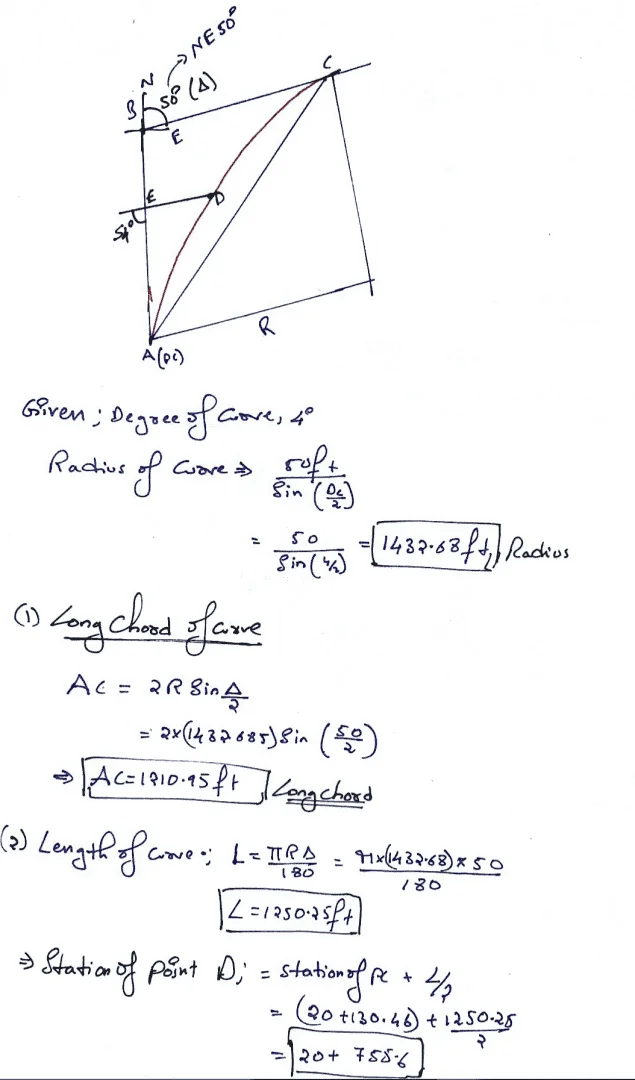 NE50°
N
50° (Δ)
B
E
C
E
D
54°
R
A(pc)
Given ; Degree of Curve, 4°
Radius of Curve ⇒ 50ft / Sin (Dc/2)
= 50 / Sin (4/2) = 1432.68ft, Radius
(1) Long Chord of Curve
AC = 2R Sin Δ/2
= 2x(1432.685) Sin (50/2)
⇒ AC=1210.95ft, Long chord
(2) Length of Curve ; L = πRΔ / 180 = πx(1432.68)x50 / 180
L = 1250.25ft
⇒ Station of point D; = Station of pc + L/2
= (20+130.46) + 1250.25 / 2
= 20+ 755.6